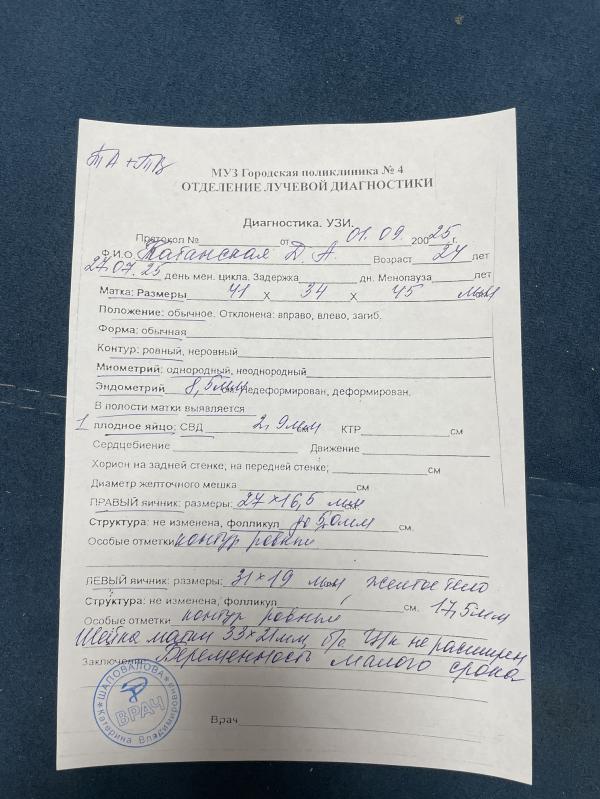 ТА + ТВ
МУЗ Городская поликлиника № 4
ОТДЕЛЕНИЕ ЛУЧЕВОЙ ДИАГНОСТИКИ
Диагностика. УЗИ.
Протокол № от 01.09. 2025 г.
Ф.И.О. Катанская Д. А Возраст 24 лет
27.07.25 день мен. цикла. Задержка дн. Менопауза лет
Матка: Размеры 41 X 34 X 45 мм
Положение: обычное. Отклонена: вправо, влево, загиб.
Форма: обычная
Контур: ровный, неровный
Миометрий: однородный, неоднородный
Эндометрий 8,5мм см. Недеформирован, деформирован.
В полости матки выявляется
1 плодное яйцо: СВД 2,9мм см КТР см
Сердцебиение Движение
Хорион на задней стенке; на передней стенке; см
Диаметр желточного мешка см
ПРАВЫЙ яичник: размеры: 27×16,5 мм см.
Структура: не изменена, фолликул до 5,0мм см.
Особые отметки контур ровный
ЛЕВЫЙ яичник: размеры: 31×19 мм желтое тело
Структура: не изменена, фолликул см. 17,5мм
Особые отметки контур ровный
Шейка матки 33×21мм, б/о. Ц/к не расширен
Заключение Беременность малого срока
ШАПОВАЛОВА
ВРАЧ
Катерина Владимировна
Врач